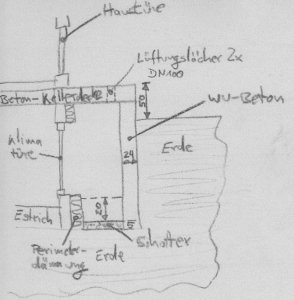 Haustüre
Lüftungslöcher 2x
DN100
Beton-Kellerdecke
50
WU-Beton
Klima
türe
24
Erde
Estrich
20
5
Perimeter-
dämmung
Erde
Schotter